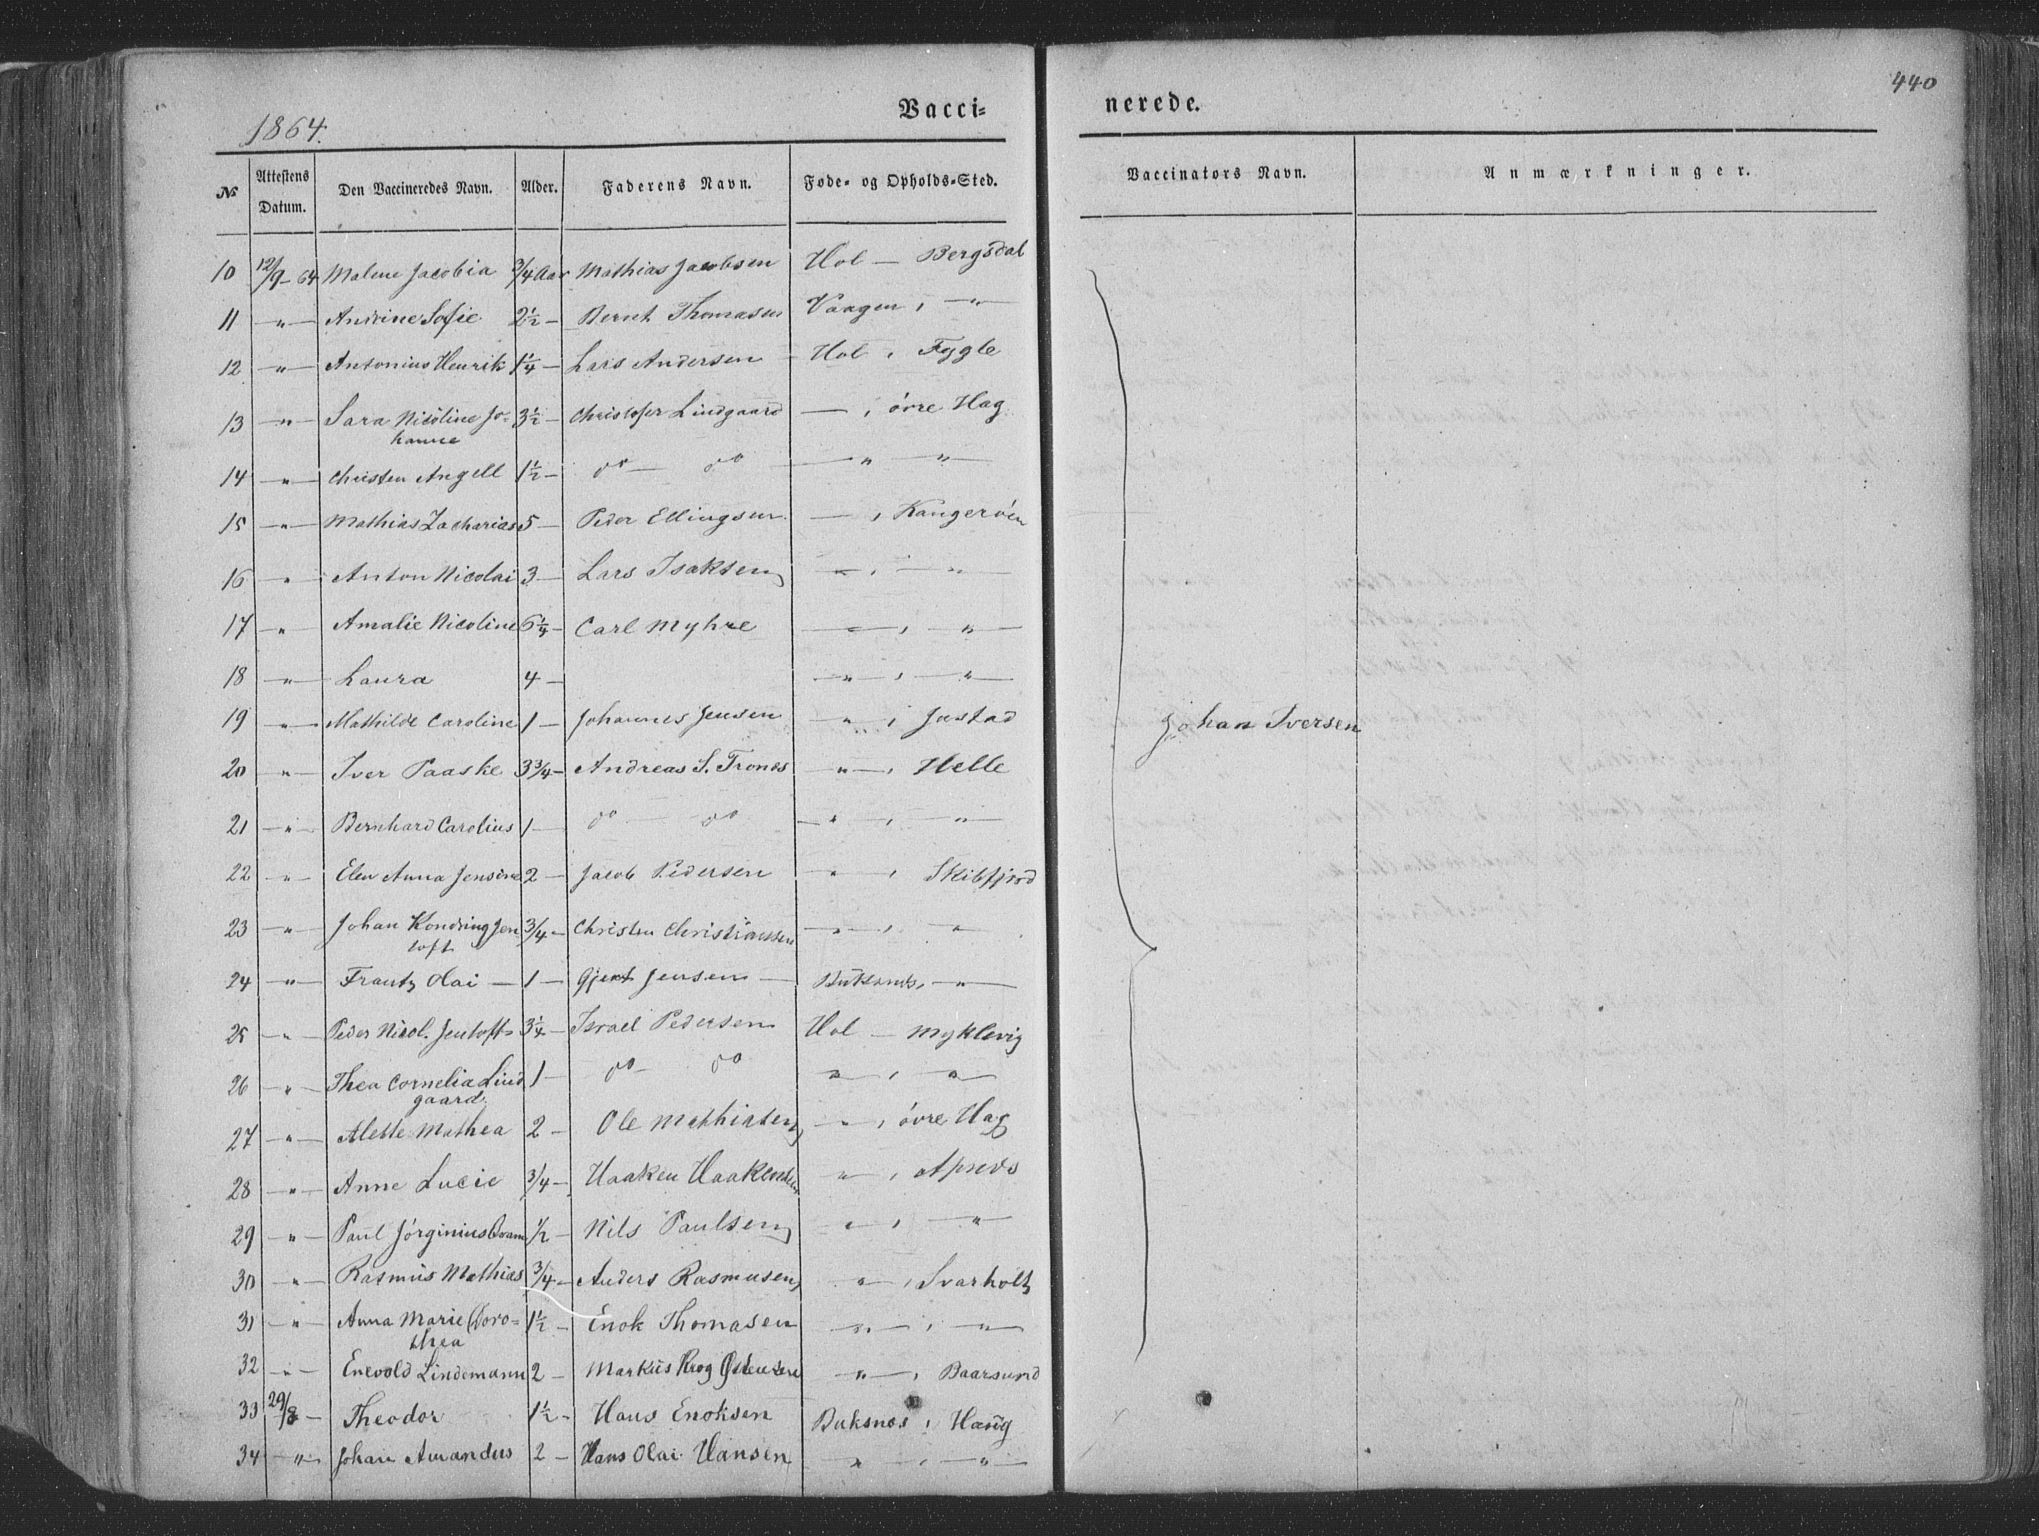 440
1864.
Vacci=
nerede.
№ Attestens Datum. Den Vaccineredes Navn. Alder. Faderens Navn. Føde- og Opholds-Sted. Vaccinators Navn. Anmærkninger.
10 12/9-64 Malene Jacobia 3/4 Aar Mathias Jacobsen Hol — Bergsdal
11 —"— Andrine Sofie 2 1/2 — Bernt Thomasen Vaagen, —"—
12 —"— Antonius Henrik 1 1/4 — Lars Andersen — Hol, Fygle
13 —"— Sara Nicoline Jo- 3 1/2 — Christofer Lindgaard —, övre Hag
hanne
14 —"— Christen Angell 1 1/2 — do — do — " — " —
15 —"— Mathias Zacharias 5 — Peder Ellingsen —, Kangeröen
16 —"— Anton Nicolai 3 — Lars Isaksen —"—, —"—
17 —"— Amalie Nicoline 6 1/4 — Carl Myhre —"—, —"—
18 —"— Laura 4 — —"—, —"—
19 —"— Mathilde Caroline 1 — Johannes Jensen —"—, Justad
20 —"— Iver Paaske 3 3/4 — Andreas S. Trones —"—, Helle
21 —"— Bernhard Carolius 1 — do — do —"—, —"—
22 —"— Elen Anna Jensine 2 — Jacob Pedersen —"—, Skibfjord
23 —"— Johan Kondring Jen 3/4 — Christen Christianssen —"—, —"—
toft
24 —"— Frantz Olai — 1 — Gjert Jensen — Buksnæs, —"—
25 —"— Peder Nicol. Jentoft 3 1/4 — Israel Pedersen Hol — Myklevig
26 —"— Thea Cornelia Lind 1 — do — do —"—, —"—
gaard.
27 —"— Alette Mathea 2 — Ole Mathiasen —"—, övre Hag
28 —"— Anne Lucie 3/4 — Haaken Haakensen —"—,
29 —"— Paul Jörginius 1/2 — Nils Paulsen —"—, —"—
30 —"— Rasmus Mathias 3/4 — Anders Rasmusen —"—, Svarholt
31 —"— Anna Marie Doro- 1 1/2 — Enok Thomasen —"—, —"—
thea
32 —"— Enevold Lindemann 2 — Markus Krog Østensen —"—, Baarsund
33 29/8 — Theodor 1 1/2 — Hans Enoksen Buksnes, Haug
34 —"— Johan Amandus 2 — Hans Olai Hansen —"—, —"—
Johan Iversen